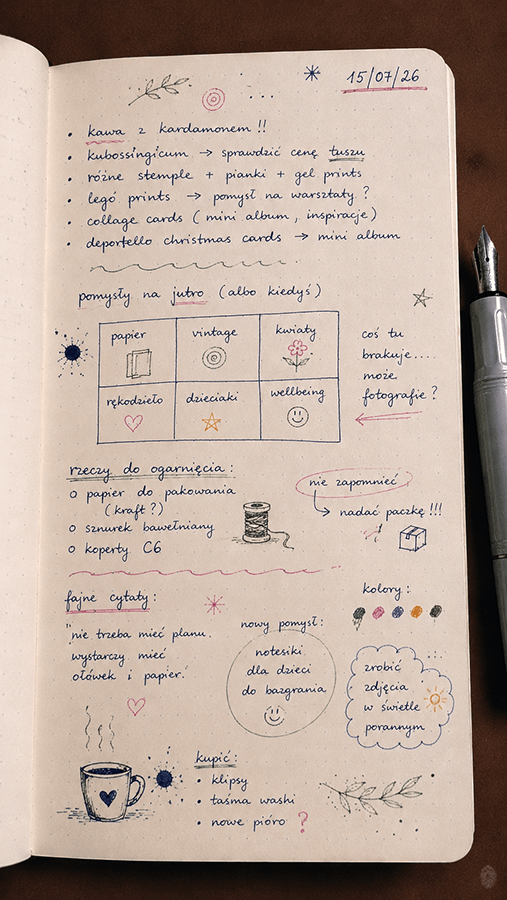 15/07/26
• kawa z kardamonem !!
• kubossingicum → sprawdzić cenę tuszu
• różne stemple + pianki + gel prints
• legó prints → pomysł na warsztaty ?
• collage cards ( mini album , inspiracje )
• deportello christmas cards → mini album
pomysły na jutro (albo kiedyś)
papier vintage kwiaty
rękodzieło dzieciaki wellbeing
coś tu
brakuje....
może
fotografie ?
rzeczy do ogarnięcia :
o papier do pakowania
(kraft ?)
o sznurek bawełniany
o koperty C6
nie zapomnieć
↳ nadać paczkę !!!
fajne cytaty :
"nie trzeba mieć planu.
wystarczy mieć
ołówek i papier."
nowy pomysł:
notesiki
dla dzieci
do bazgrania
kolory :
zrobić
zdjęcia
w świetle
porannym
kupić :
• klipsy
• taśma washi
• nowe pióro ?